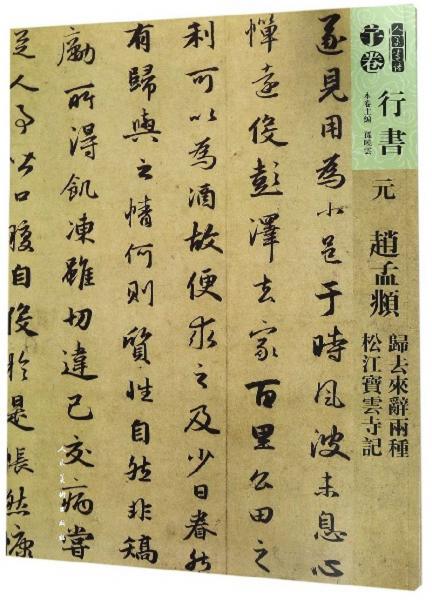 人美書譜
子卷
行書
本卷主編 孫曉雲
元
趙孟頫
歸去來辭兩種
松江寶雲寺記
遂見用為小邑于時風波未息心
憚遠役彭澤去家百里公田之
利可以為酒故便求之及少日眷然
有歸與之情何則質性自然非矯
勵所得飢凍雖切違己交病嘗
從人事皆口腹自役於是悵然慷
人民美術出版社